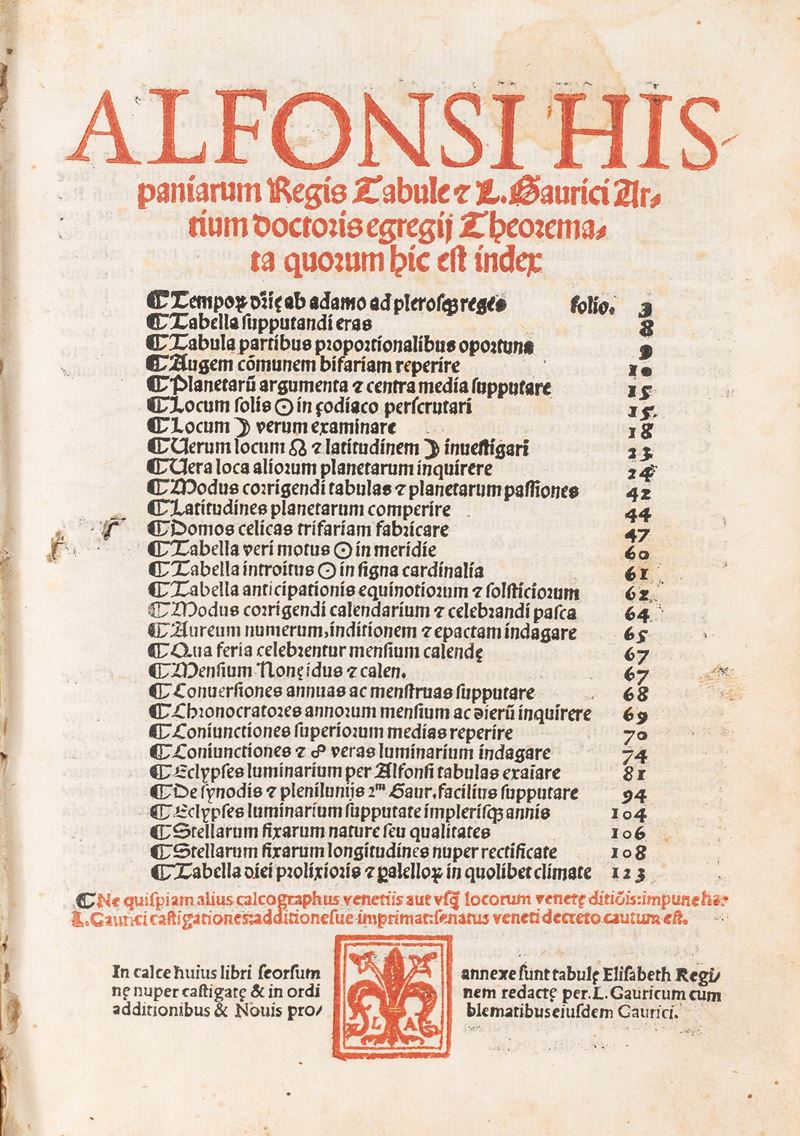 ALFONSI HIS
paniarum Regis Tabule ⁊ L. Gaurici Ar⸗
tium doctoris egregij Theorema⸗
ta quorum hic est index
⸿Tempoꝝ dr̃ię ab adamo ad plerosqꝫ reges folio. 3
⸿Tabella supputandi eras 8
⸿Tabula partibus proportionalibus oportuna 9
⸿Augem cõmunem bifariam reperire 10
⸿Planetarũ argumenta ⁊ centra media supputare 15
⸿Locum solis ☉ in çodiaco perscrutari 15.
⸿Locum ☽ verum examinare 18
⸿Uerum locum ☊ ⁊ latitudinem ☽ inuestigari 23
⸿Uera loca aliorum planetarum inquirere 24
⸿Modus corrigendi tabulas ⁊ planetarum passiones 42
⸿Latitudines planetarum comperire 44
⸿Domos celicas trifariam fabricare 47
⸿Tabella veri motus ☉ in meridie 60
⸿Tabella introitus ☉ in signa cardinalia 61
⸿Tabella anticipationis equinotiorum ⁊ solsticiorum 62
⸿Modus corrigendi calendarium ⁊ celebrandi pasca 64
⸿Aureum numerum, inditionem ⁊ epactam indagare 65
⸿Qua feria celebrentur mensium calendę 67
⸿Mensium Nonę idus ⁊ calen. 67
⸿Conuersiones annuas ac menstruas supputare 68
⸿Chronocratores annorum mensium ac dierũ inquirere 69
⸿Coniunctiones superiorum medias reperire 70
⸿Coniunctiones ⁊ ☍ veras luminarium indagare 74
⸿Eclypses luminarium per Alfonsi tabulas exaiare 81
⸿De synodis ⁊ plenilunijs 2ᵐ Gaur. facilius supputare 94
⸿Eclypses luminarium supputate implerisqꝫ annis 104
⸿Stellarum fixarum nature seu qualitates 106
⸿Stellarum fixarum longitudines nuper rectificate 108
⸿Tabella diei prolixioris ⁊ ꝑalelloꝝ in quolibet climate 123
⸿Ne quispiam alius calcographus venetiis aut vsq̃ locorum venetę ditiõis: impune has
L. Gaurici castigationes: additionesue imprimat: senatus veneti decreto cautum est.
In calce huius libri seorsum annexe sunt tabulę Elisabeth Regi/
nę nuper castigatę & in ordi nem redactę per. L. Gauricum cum
additionibus & Nouis pro/ blematibus eiusdem Gaurici.
L A